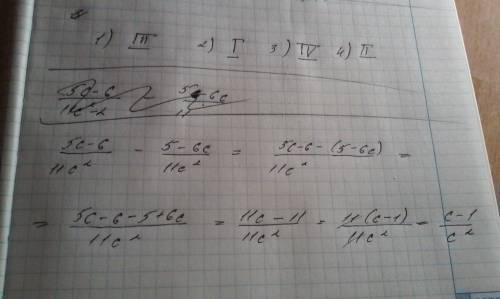 1) III 2) I 3) IV 4) II
5c-6/11c²-2 - 5-6c/11
5c-6/11c² - 5-6c/11c² = 5c-6-(5-6c)/11c² =
= 5c-6-5+6c/11c² = 11c-11/11c² = 11(c-1)/11c² = c-1/c²